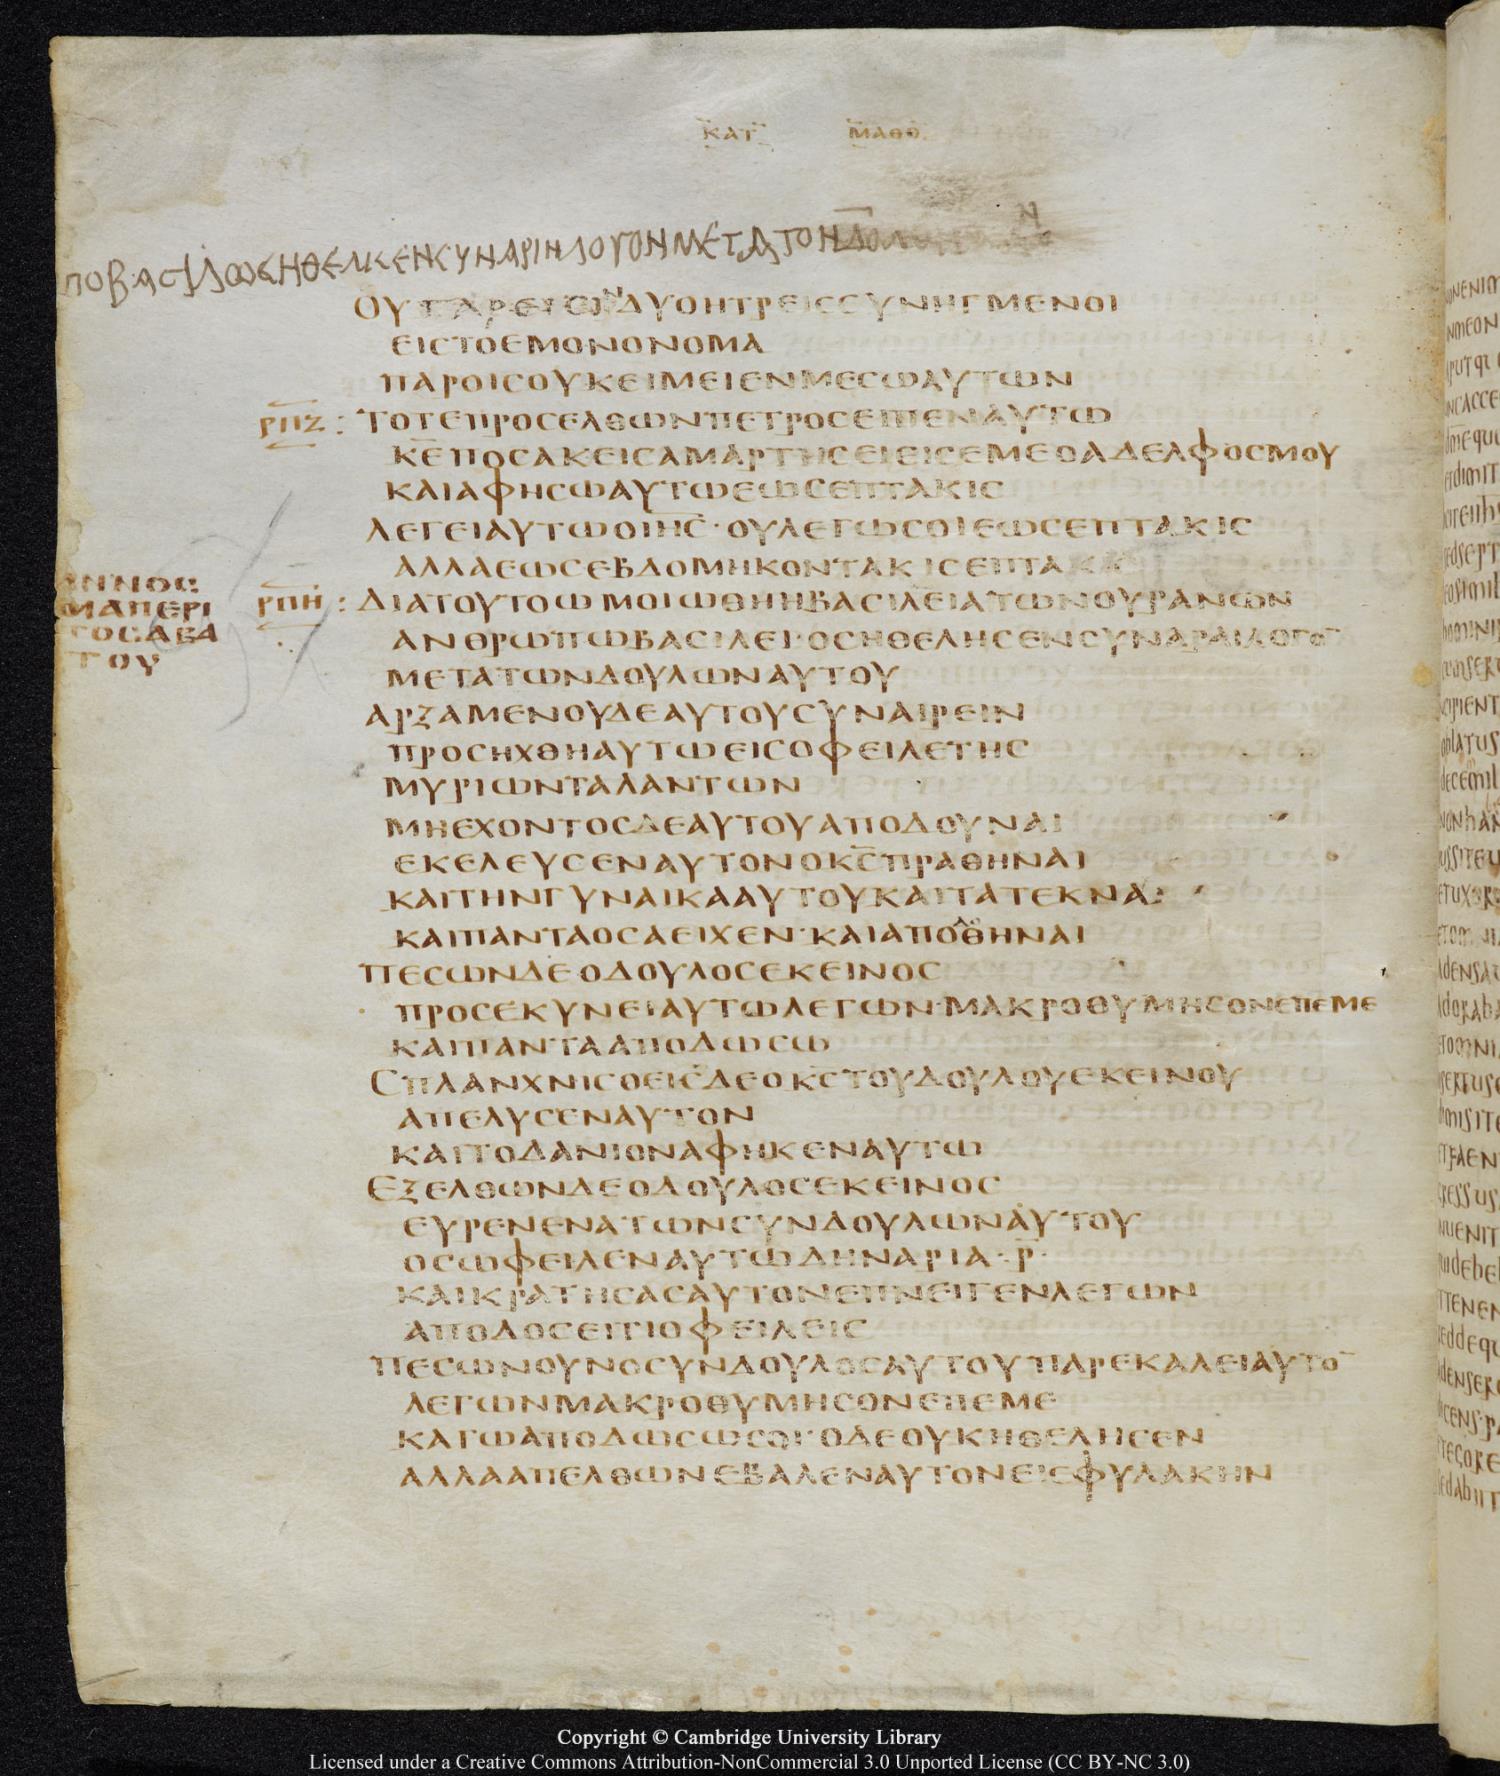 ΚΑΤ ΜΑΘΘ
ΟΥ ΓΑΡΕΙCΙΝΔΥΟΗΤΡΕΙCCΥΝΗΓΜΕΝΟΙ
ΕΙCΤΟΕΜΟΝΟΝΟΜΑ
ΠΑΡΟΙCΟΥΚΕΙΜΕΙΕΝΜΕCΩΑΥΤΩΝ
ΡΠΖ : ΤΟΤΕΠΡΟCΕΛΘΩΝΠΕΤΡΟCΕΙΠΕΝΑΥΤΩ
ΚΕ ΠΟCΑΚΕΙCΑΜΑΡΤΗCΕΙΕΙCΕΜΕΟΑΔΕΛΦΟCΜΟΥ
ΚΑΙΑΦΗCΩΑΥΤΩΕΩCΕΠΤΑΚΙC
ΛΕΓΕΙΑΥΤΩΟΙΗC· ΟΥΛΕΓΩCΟΙΕΩCΕΠΤΑΚΙC
ΑΛΛΑΕΩCΕΒΔΟΜΗΚΟΝΤΑΚΙCΕΠΤΑΚΙC
ΑΝΝΟC
ΜΑΠΕΡΙ
ΤΟCΑΒΑ
ΤΟΥ
ΡΠΗ : ΔΙΑΤΟΥΤΟΩΜΟΙΩΘΗΗΒΑCΙΛΕΙΑΤΩΝΟΥΡΑΝΩΝ
ΑΝΘΡΩΠΩΒΑCΙΛΕΙ·ΟCΗΘΕΛΗCΕΝCΥΝΑΡΑΙΛΟΓΟ¯
ΜΕΤΑΤΩΝΔΟΥΛΩΝΑΥΤΟΥ
ΑΡΞΑΜΕΝΟΥΔΕΑΥΤΟΥCΥΝΑΙΡΕΙΝ
ΠΡΟCΗΧΘΗΑΥΤΩΕΙCΟΦΕΙΛΕΤΗC
ΜΥΡΙΩΝΤΑΛΑΝΤΩΝ
ΜΗΕΧΟΝΤΟCΔΕΑΥΤΟΥΑΠΟΔΟΥΝΑΙ
ΕΚΕΛΕΥCΕΝΑΥΤΟΝΟΚCΠΡΑΘΗΝΑΙ
ΚΑΙΤΗΝΓΥΝΑΙΚΑΑΥΤΟΥΚΑΙΤΑΤΕΚΝΑ
ΚΑΙΠΑΝΤΑΟCΑΕΙΧΕΝ·ΚΑΙΑΠΟΔΟΘΗΝΑΙ
ΠΕCΩΝΔΕΟΔΟΥΛΟCΕΚΕΙΝΟC
ΠΡΟCΕΚΥΝΕΙΑΥΤΩΛΕΓΩΝ·ΜΑΚΡΟΘΥΜΗCΟΝΕΠΕΜΕ
ΚΑΙΠΑΝΤΑΑΠΟΔΩCΩ
CΠΛΑΝΧΝΙCΘΕΙCΔΕΟΚCΤΟΥΔΟΥΛΟΥΕΚΕΙΝΟΥ
ΑΠΕΛΥCΕΝΑΥΤΟΝ
ΚΑΙΤΟΔΑΝΙΟΝΑΦΗΚΕΝΑΥΤΩ
ΕΞΕΛΘΩΝΔΕΟΔΟΥΛΟCΕΚΕΙΝΟC
ΕΥΡΕΝΕΝΑΤΩΝCΥΝΔΟΥΛΩΝΑΥΤΟΥ
ΟCΩΦΕΙΛΕΝΑΥΤΩΔΗΝΑΡΙΑ·Ρ·
ΚΑΙΚΡΑΤΗCΑCΑΥΤΟΝΕΠΝΕΙΓΕΝΛΕΓΩΝ
ΑΠΟΔΟCΕΙΤΙΟΦΕΙΛΕΙC
ΠΕCΩΝΟΥΝΟCΥΝΔΟΥΛΟCΑΥΤΟΥΠΑΡΕΚΑΛΕΙΑΥΤΟ¯
ΛΕΓΩΝΜΑΚΡΟΘΥΜΗCΟΝΕΠΕΜΕ
ΚΑΓΩΑΠΟΔΩCΩCΟΙ·ΟΔΕΟΥΚΗΘΕΛΗCΕΝ
ΑΛΛΑΑΠΕΛΘΩΝΕΒΑΛΕΝΑΥΤΟΝΕΙCΦΥΛΑΚΗΝ
Copyright © Cambridge University Library
Licensed under a Creative Commons Attribution-NonCommercial 3.0 Unported License (CC BY-NC 3.0)